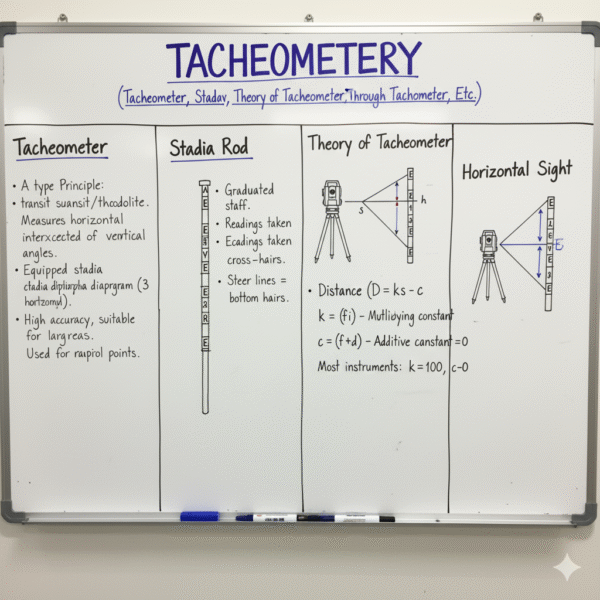 TACHEOMETERY
(Tacheometer, Stadav, Theory of Tacheometer, Through Tachometer, Etc.)
Tacheometer
• A type Principle:
• transit suansit/thcodolite.
• Measures horizontal
interxcected of vertical
angles.
• Equipped stadia
ctadia diplipha diapgram (3
hortzomyl).
• High accuracy, suitable
for largreas.
Used for rapirol points.
Stadia Rod
A
E
E
E
V
E
E
3
R
E
• Graduated
staff.
• Readings taken
• Ecadings taken
cross-hairs.
• Steer lines =
bottom hairs.
Theory of Tacheometer
E
E
t
3
E
E
s
h
• Distance (D = ks – c
k = (fi) – Mutliodying constant
c = (f+d) – Additive canstant = 0
Most instruments: k = 100, c–0
Horizontal Sight
E
E
V
E
3
E
E